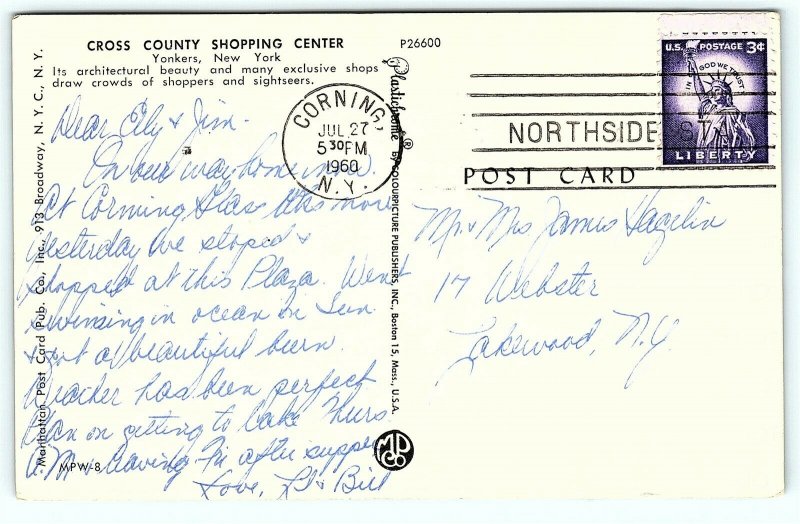 CROSS COUNTY SHOPPING CENTER
Yonkers, New York
Its architectural beauty and many exclusive shops
draw crowds of shoppers and sightseers.
P26600
U.S. POSTAGE 3¢
IN GOD WE TRUST
LIBERTY
CORNING,
JUL 27
5 30 PM
1960
N.Y.
NORTHSIDE STA.
POST CARD
Dear Ely & Jim.
On our way home now.
At Corning Glass this morn
yesterday we stoped &
shopped at this Plaza. Went
swimsing in ocean on Sun.
& got a beautiful burn.
Weather has been perfect
Plan on getting to Lake Thurs
P.M. & leaving Fri after supper
Love, & Bill
Mr & Mrs James Hagelin
17 Webster
Lakewood, N.Y.
Plastichrome ® BY COLOURPICTURE PUBLISHERS, INC., Boston 15, Mass., U.S.A.
Manhattan Post Card Pub. Co., Inc., 913 Broadway, N. Y. C., N. Y.
MPW-8
MP
CO